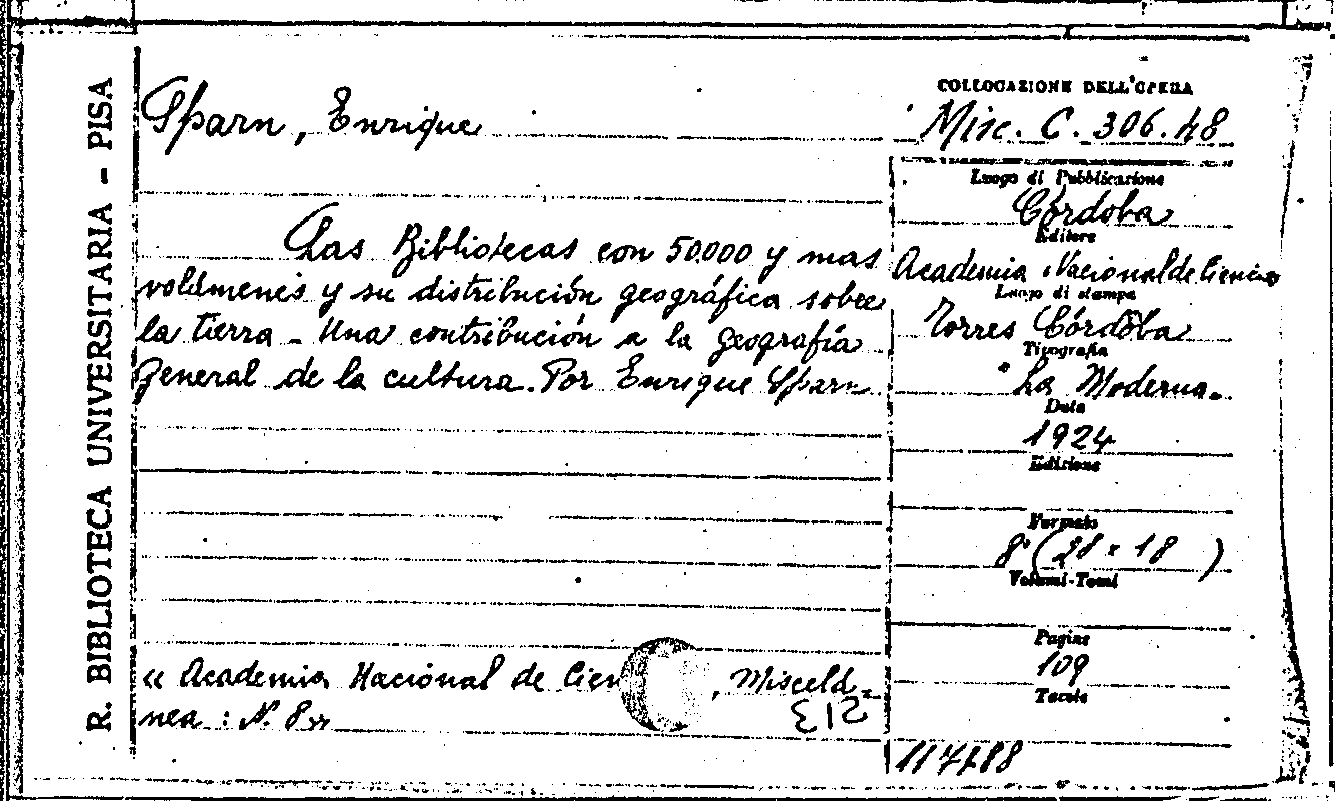 R. BIBLIOTECA UNIVERSITARIA - PISA
Sparn, Enrique
Las Bibliotecas con 50.000 y mas
volúmenes y su distribución geográfica sobre
la tierra - Una contribución a la geografía
general de la cultura. Por Enrique Sparn
« Academia Nacional de Cien , Misceld-
nea : N. 8 »
213
COLLOCAZIONE DELL'OPERA
Misc. C. 306.48
Luogo di Pubblicazione
Córdoba
Editore
Academia Nacional de Ciencias
Luogo di stampa
Torres Córdoba
Tipografia
"La Moderna"
Data
1924
Edizione
Formato
8° (28 × 18 )
Volumi-Tomi
Pagine
109
Tavole